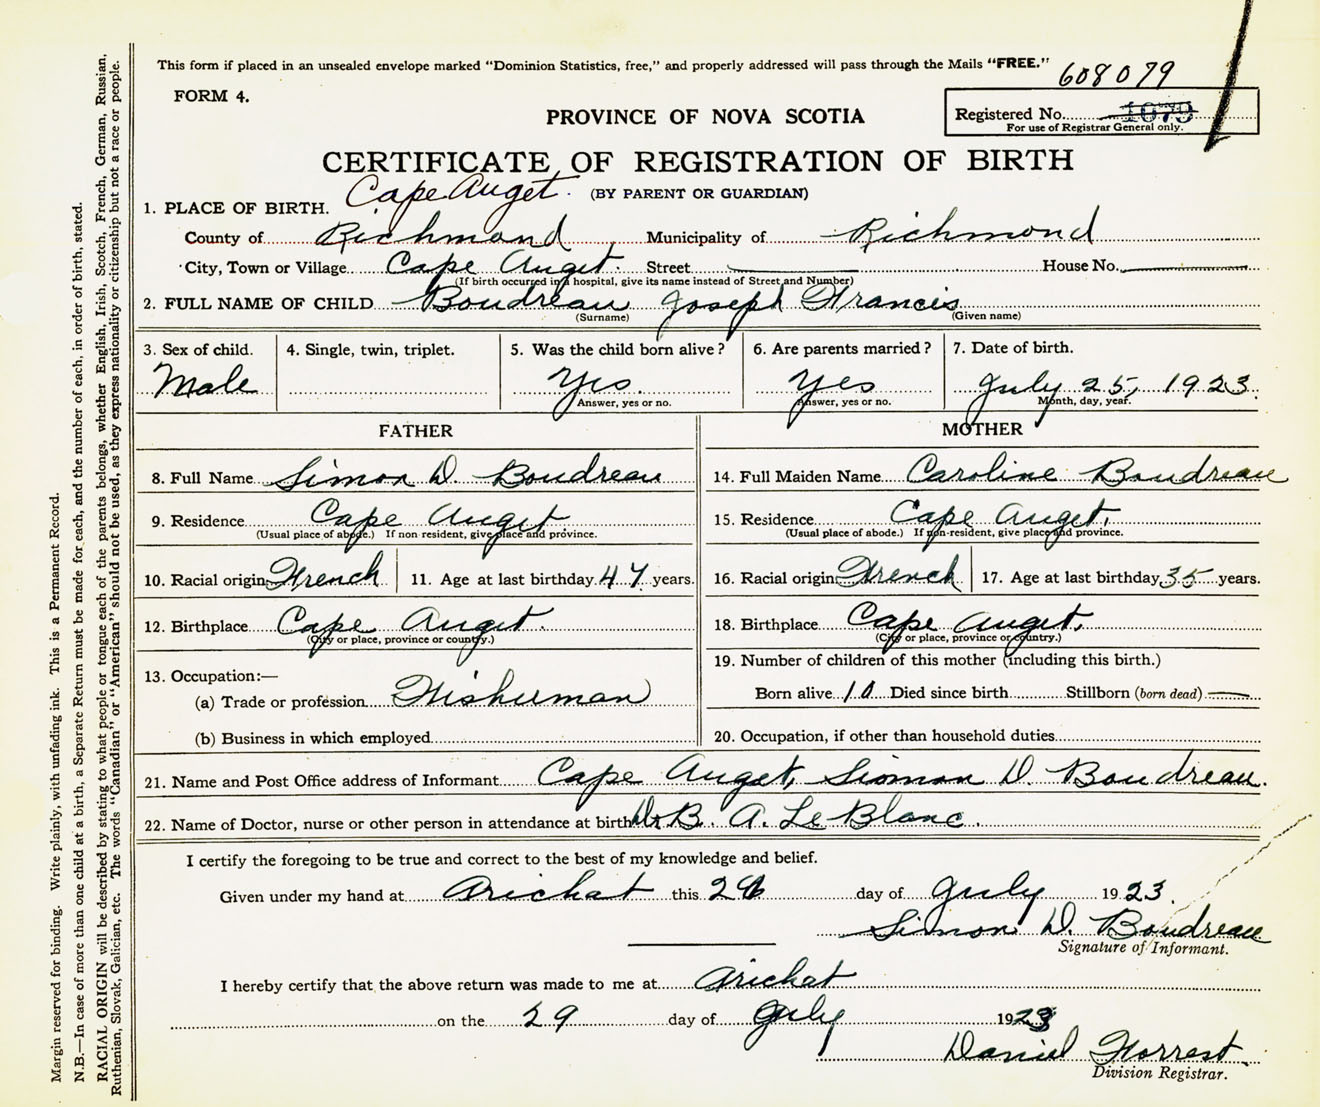 This form if placed in an unsealed envelope marked "Dominion Statistics, free," and properly addressed will pass through the Mails "FREE."
608079
FORM 4.
Registered No. 1079
For use of Registrar General only.
PROVINCE OF NOVA SCOTIA
CERTIFICATE OF REGISTRATION OF BIRTH
Cape Auget. (BY PARENT OR GUARDIAN)
1. PLACE OF BIRTH.
County of Richmond Municipality of Richmond
City, Town or Village Cape Auget. Street House No.
(If birth occurred in a hospital, give its name instead of Street and Number)
2. FULL NAME OF CHILD Boudreau Joseph Francis
(Surname) (Given name)
3. Sex of child. 4. Single, twin, triplet. 5. Was the child born alive? 6. Are parents married? 7. Date of birth.
Male Yes. Yes July 25, 1923.
Answer, yes or no. Answer, yes or no. Month, day, year.
FATHER MOTHER
8. Full Name Simon D. Boudreau 14. Full Maiden Name Caroline Boudreau
9. Residence Cape Auget 15. Residence Cape Auget.
(Usual place of abode.) If non-resident, give place and province. (Usual place of abode.) If non-resident, give place and province.
10. Racial origin French 11. Age at last birthday 47 years. 16. Racial origin French 17. Age at last birthday 35 years.
12. Birthplace Cape Auget. 18. Birthplace Cape Auget.
(City or place, province or country.) (City or place, province or country.)
13. Occupation:— 19. Number of children of this mother (including this birth.)
(a) Trade or profession Fisherman Born alive 10 Died since birth Stillborn (born dead)
(b) Business in which employed 20. Occupation, if other than household duties
21. Name and Post Office address of Informant Cape Auget, Siomon D Boudreau.
22. Name of Doctor, nurse or other person in attendance at birth Dr B. A. LeBlanc.
I certify the foregoing to be true and correct to the best of my knowledge and belief.
Given under my hand at Arichat this 26 day of July 1923.
Simon D. Boudreau
Signature of Informant.
I hereby certify that the above return was made to me at Arichat
on the 29 day of July 1923
Daniel Forrest.
Division Registrar.
Margin reserved for binding. Write plainly, with unfading ink. This is a Permanent Record.
N.B.—In case of more than one child at a birth, a Separate Return must be made for each, and the number of each, in order of birth, stated.
RACIAL ORIGIN will be described by stating to what people or tongue each of the parents belongs, whether English, Irish, Scotch, French, German, Russian,
Ruthenian, Slovak, Galician, etc. The words "Canadian" or "American" should not be used, as they express nationality or citizenship but not a race or people.